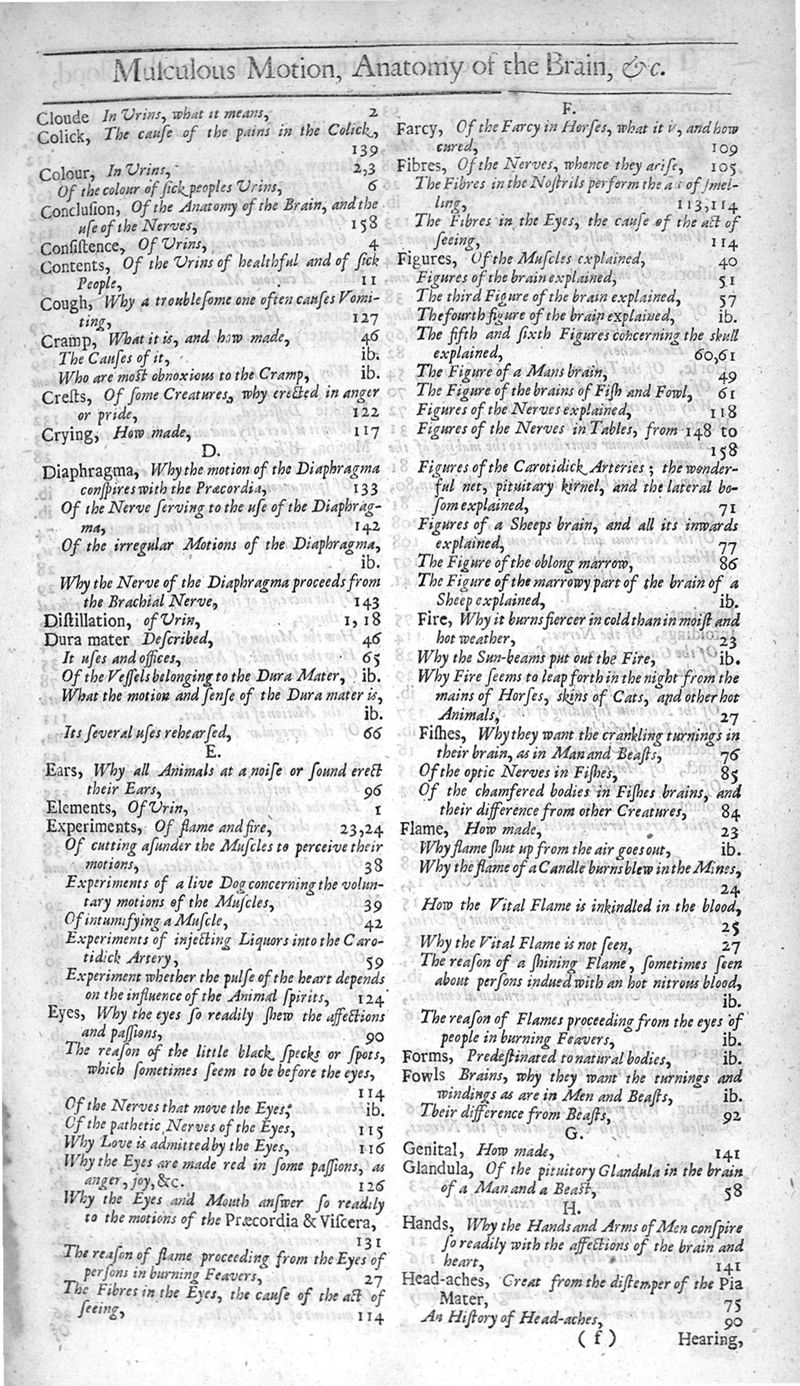 Muſculous Motion, Anatomy of the Brain, &c.
Cloude In Vrins, what it means, 2
Colick, The cauſe of the pains in the Colick,
139
Colour, In Vrins, 2,3
Of the colour of ſick peoples Vrins, 6
Concluſion, Of the Anatomy of the Brain, and the
uſe of the Nerves, 158
Conſiſtence, Of Vrins, 4
Contents, Of the Vrins of healthful and of ſick
People, 11
Cough, Why a troubleſome one often cauſes Vomi-
ting, 127
Cramp, What it is, and how made, 46
The Cauſes of it, ib.
Who are moſt obnoxious to the Cramp, ib.
Creſts, Of ſome Creatures, why erected in anger
or pride, 122
Crying, How made, 117
D.
Diaphragma, Why the motion of the Diaphragma
conſpires with the Præcordia, 133
Of the Nerve ſerving to the uſe of the Diaphrag-
ma, 142
Of the irregular Motions of the Diaphragma,
ib.
Why the Nerve of the Diaphragma proceeds from
the Brachial Nerve, 143
Diſtillation, of Vrin, 1, 18
Dura mater Deſcribed, 46
It uſes and offices, 65
Of the Veſſels belonging to the Dura Mater, ib.
What the motion and ſenſe of the Dura mater is,
ib.
Its ſeveral uſes rehearſed, 66
E.
Ears, Why all Animals at a noiſe or ſound erect
their Ears, 96
Elements, Of Vrin, 1
Experiments, Of flame and fire, 23,24
Of cutting aſunder the Muſcles to perceive their
motions, 38
Experiments of a live Dog concerning the volun-
tary motions of the Muſcles, 39
Of intumifying a Muſcle, 42
Experiments of injecting Liquors into the Caro-
tidick Artery, 59
Experiment whether the pulſe of the heart depends
on the influence of the Animal ſpirits, 124
Eyes, Why the eyes ſo readily ſhew the affections
and paſſions, 90
The reaſon of the little black ſpecks or ſpots,
which ſometimes ſeem to be before the eyes,
114
Of the Nerves that move the Eyes, ib.
Of the pathetic Nerves of the Eyes, 115
Why Love is admitted by the Eyes, 116
Why the Eyes are made red in ſome paſſions, as
anger, joy, &c. 126
Why the Eyes and Mouth anſwer ſo readily
to the motions of the Præcordia & Viſcera,
131
The reaſon of flame proceeding from the Eyes of
perſons in burning Feavers, 27
The Fibres in the Eyes, the cauſe of the act of
ſeeing, 114
F.
Farcy, Of the Farcy in Horſes, what it is, and how
cured, 109
Fibres, Of the Nerves, whence they ariſe, 105
The Fibres in the Noſtrils perform the a of ſmel-
ling, 113,114
The Fibres in the Eyes, the cauſe of the act of
ſeeing, 114
Figures, Of the Muſcles explained, 40
Figures of the brain explained, 51
The third Figure of the brain explained, 57
The fourth figure of the brain explained, ib.
The fifth and ſixth Figures concerning the skull
explained, 60,61
The Figure of a Mans brain, 49
The Figure of the brains of Fiſh and Fowl, 61
Figures of the Nerves explained, 118
Figures of the Nerves in Tables, from 148 to
158
Figures of the Carotidick Arteries ; the wonder-
ful net, pituitary kernel, and the lateral bo-
ſom explained, 71
Figures of a Sheeps brain, and all its inwards
explained, 77
The Figure of the oblong marrow, 86
The Figure of the marrowy part of the brain of a
Sheep explained, ib.
Fire, Why it burns fiercer in cold than in moiſt and
hot weather, 23
Why the Sun-beams put out the Fire, ib.
Why Fire ſeems to leap forth in the night from the
mains of Horſes, skins of Cats, and other hot
Animals, 27
Fiſhes, Why they want the crankling turnings in
their brain, as in Man and Beaſts, 76
Of the optic Nerves in Fiſhes, 85
Of the chamfered bodies in Fiſhes brains, and
their difference from other Creatures, 84
Flame, How made, 23
Why flame ſhut up from the air goes out, ib.
Why the flame of a Candle burns blew in the Mines,
24
How the Vital Flame is inkindled in the blood,
25
Why the Vital Flame is not ſeen, 27
The reaſon of a ſhining Flame, ſometimes ſeen
about perſons indued with an hot nitrous blood,
ib.
The reaſon of Flames proceeding from the eyes of
people in burning Feavers, ib.
Forms, Predeſtinated to natural bodies, ib.
Fowls Brains, why they want the turnings and
windings as are in Men and Beaſts, ib.
Their difference from Beaſts, 92
G.
Genital, How made, 141
Glandula, Of the pituitory Glandula in the brain
of a Man and a Beaſt, 58
H.
Hands, Why the Hands and Arms of Men conſpire
ſo readily with the affections of the brain and
heart, 141
Head-aches, Great from the diſtemper of the Pia
Mater, 75
An Hiſtory of Head-aches, 90
( f ) Hearing,